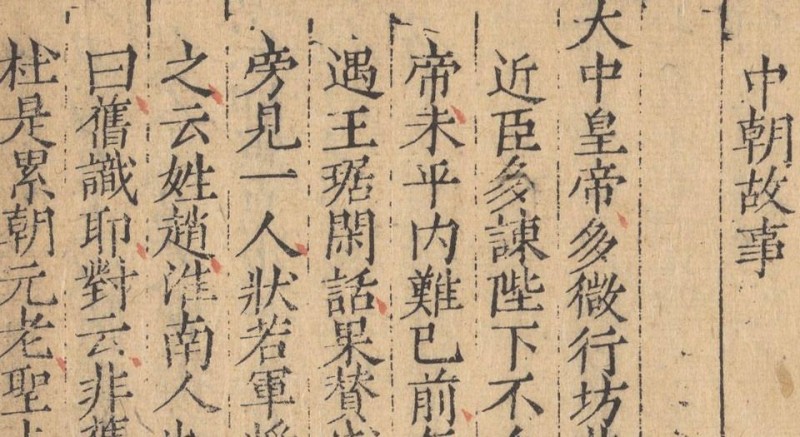 中朝故事
大中皇帝多微行坊
近臣多諫陛下不
帝未平内難已前
遇王琚閑話果賛
旁見一人狀若軍將
之云姓趙淮南人
曰舊識耶對云非舊
杜是累朝元老聖